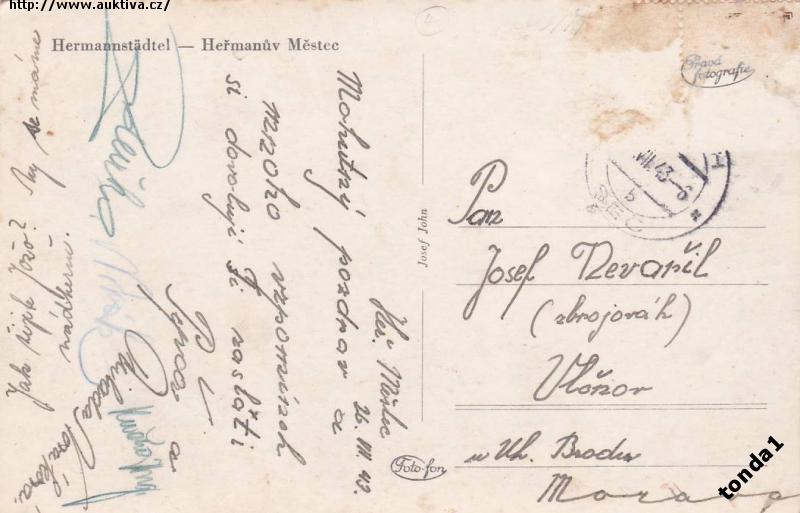 http://www.auktiva.cz/
Hermannstädtel — Heřmanův Městec
Pravá
fotografie
VIII. 43
Josef John
Foto-fon
Heř. Městec
26. VIII. 43.
Mohutný pozdrav a
mnoho vzpomínek
si dovolují Ti zaslati
a
Pan
Josef Nevařil
(zbrojovák)
Vlčnov
u Uh. Brodu
Morava
Jak žiješ Jožo? My se máme
nádherně.
tonda1